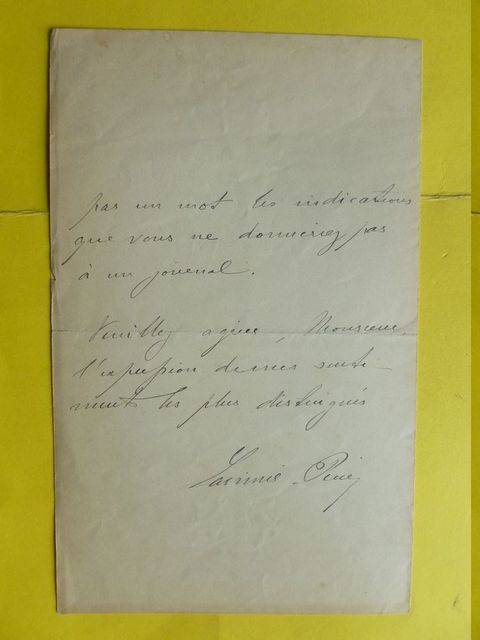 pas un mot les indications
que vous ne donneriez pas
à un journal.
Veuillez agréer, Monsieur,
l'expression de mes senti-
ments les plus distingués